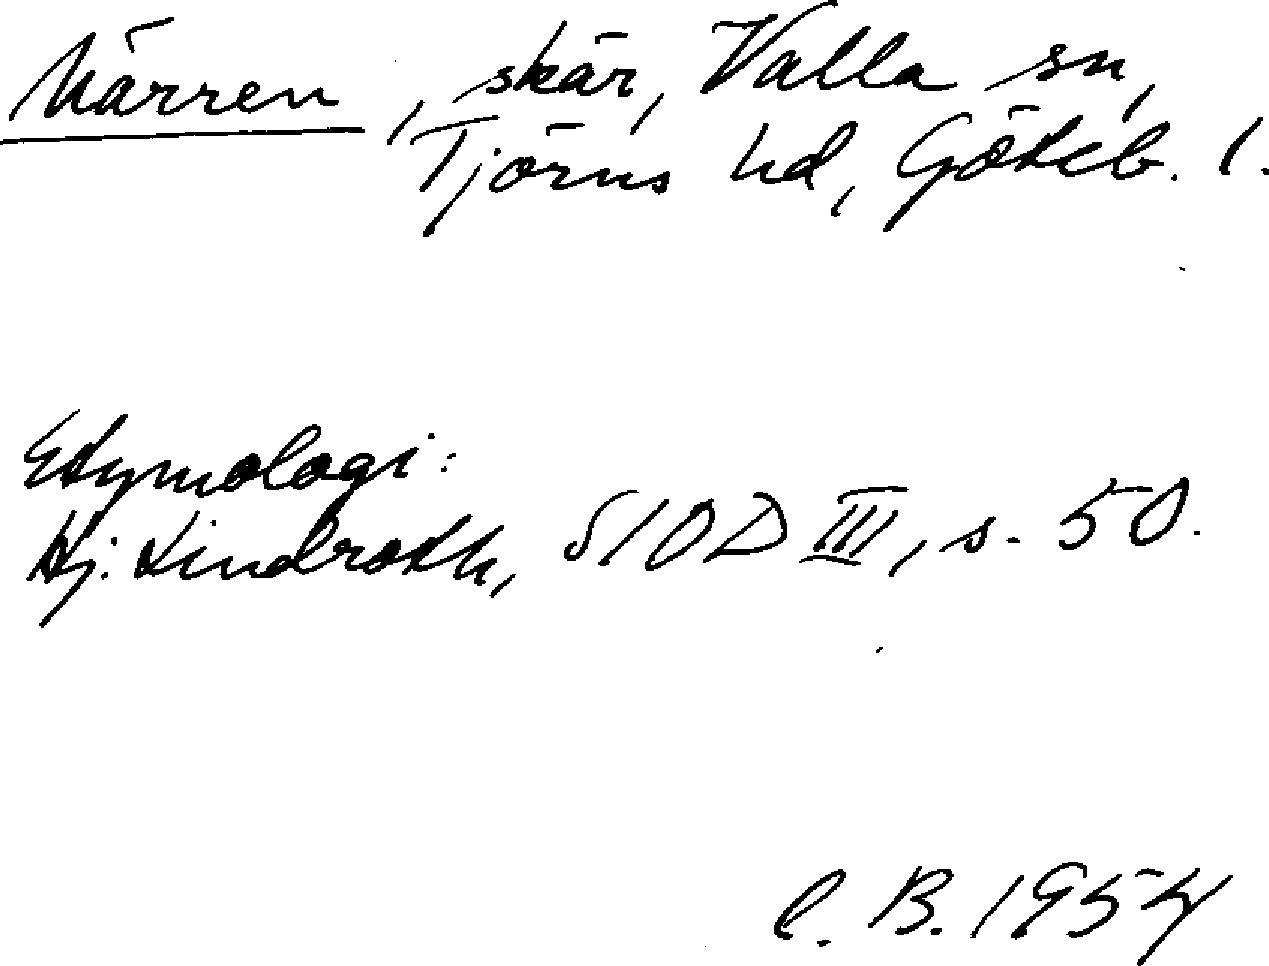 Märren, skär, Valla sn,
Tjörns hd, Göteb. l.
Etymologi:
Hj. Lindroth, SIOD III, s. 50.
C. B. 1954